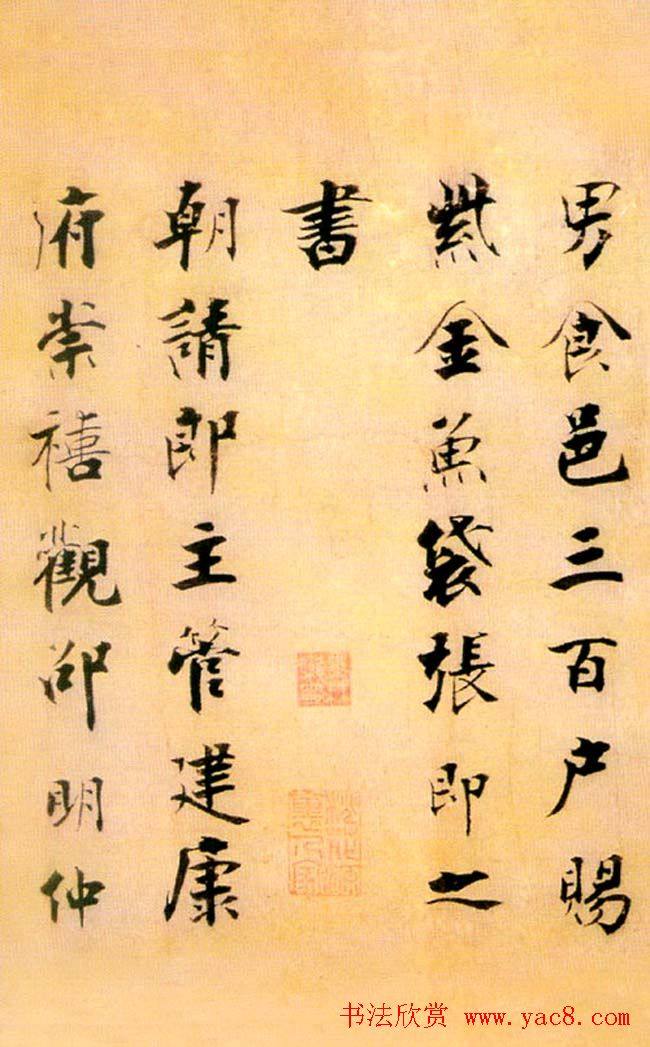 男食邑三百户賜
紫金魚袋張即之
書
朝請郎主管建康
府崇禧觀邵明仲
书法欣赏 www.yac8.com